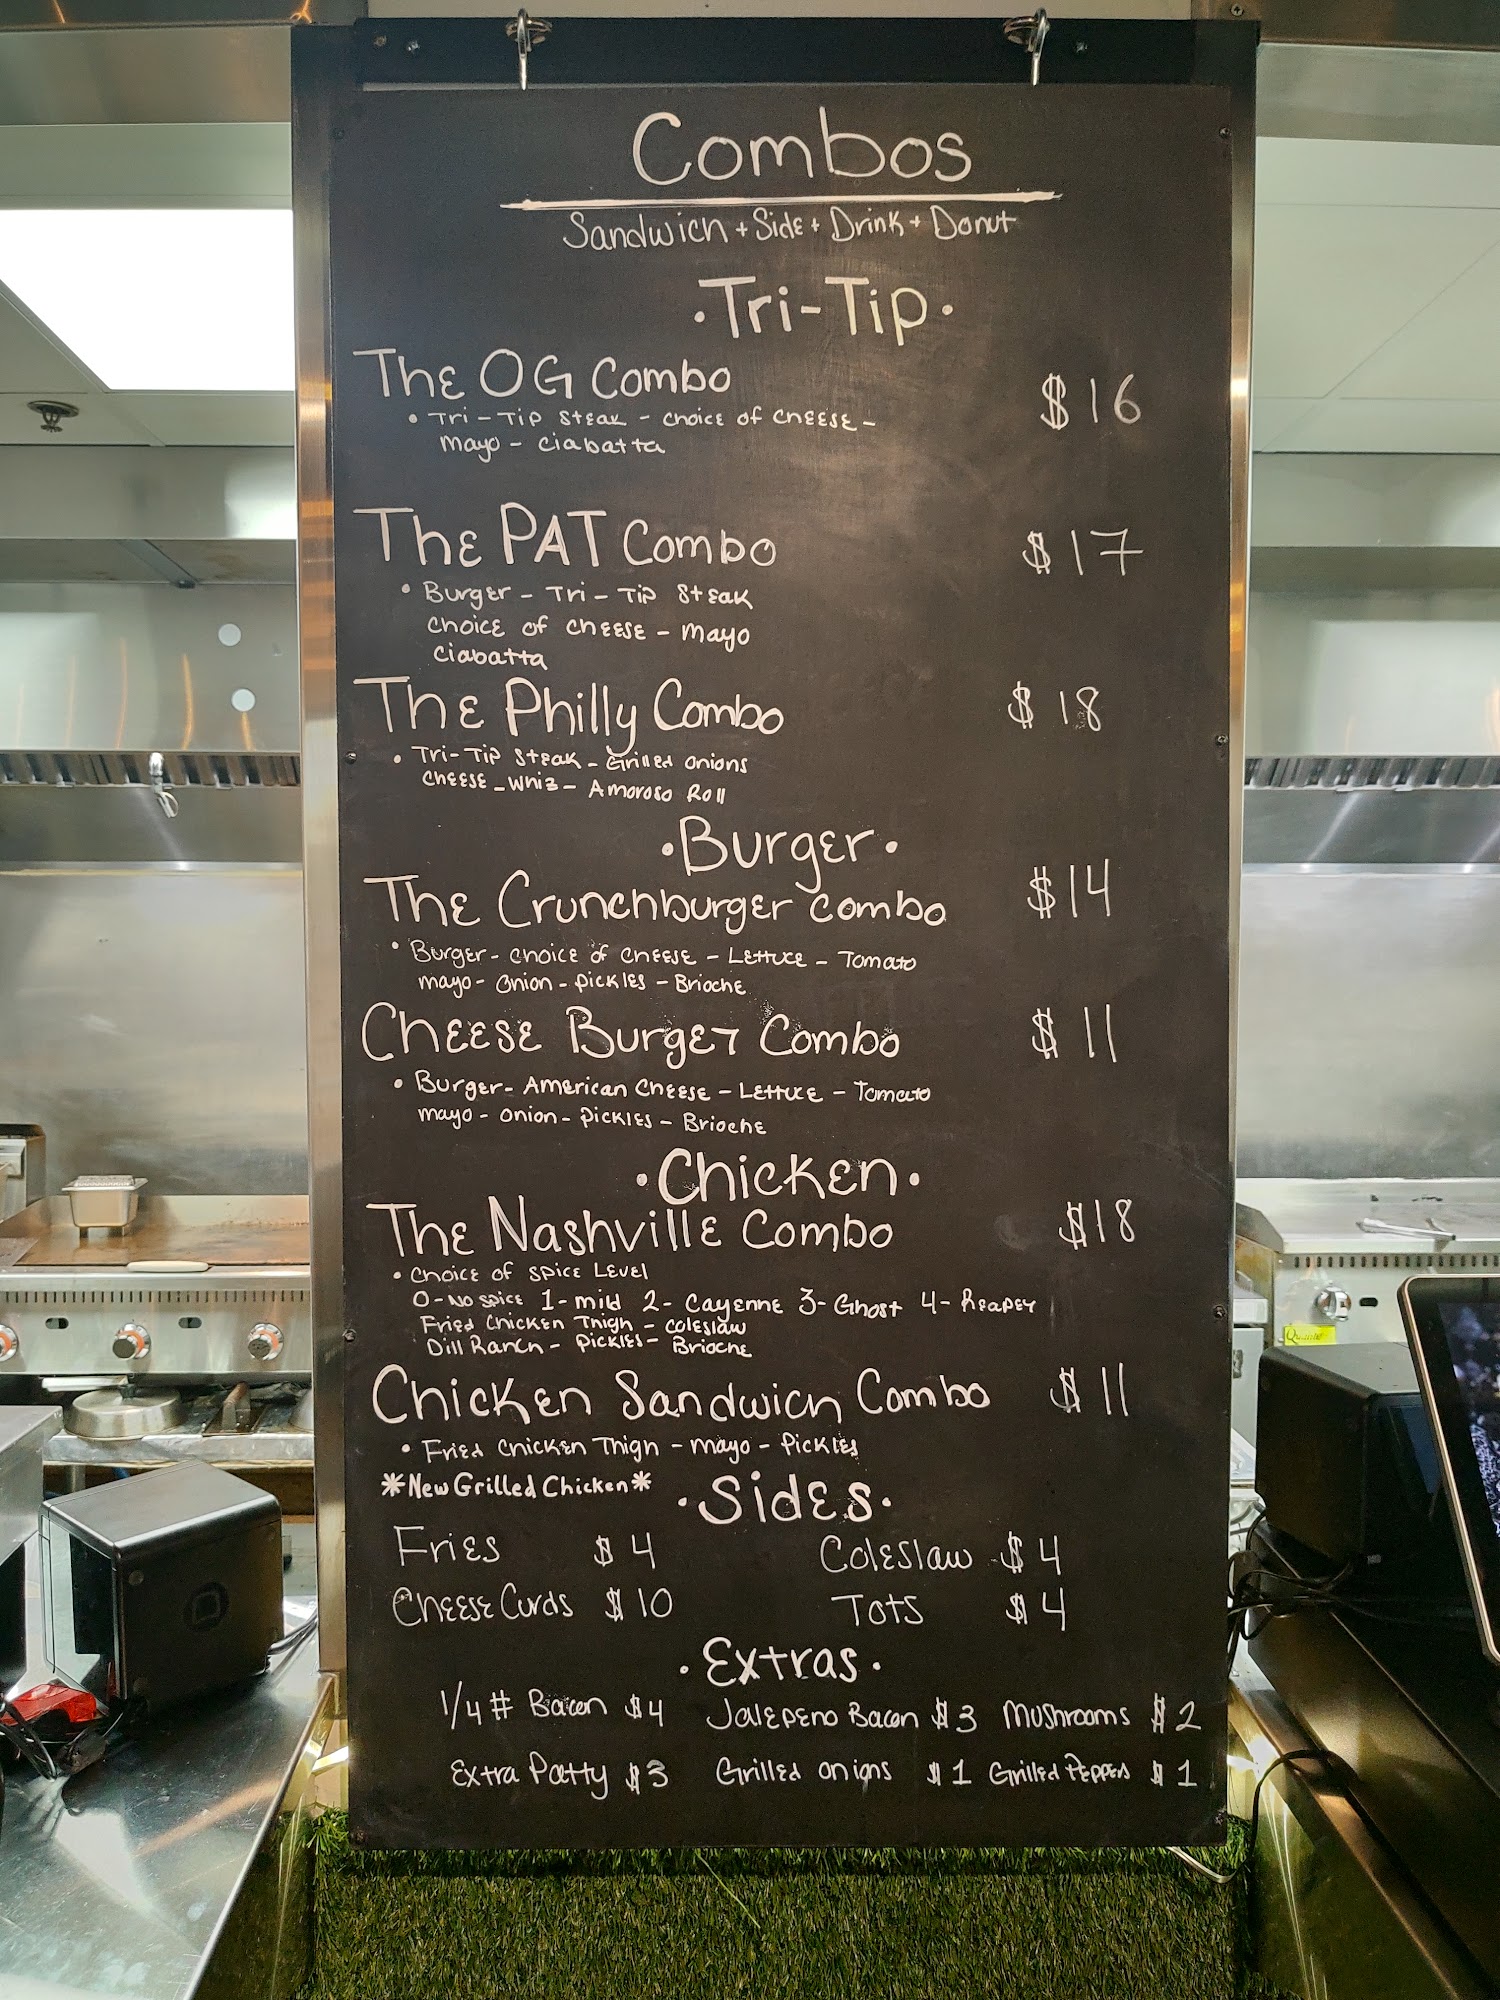 Combos
Sandwich + Side + Drink + Donut
• Tri-Tip •
The OG Combo $16
• Tri-Tip Steak - Choice of Cheese -
Mayo - Ciabatta
The PAT Combo $17
• Burger - Tri-Tip Steak
Choice of Cheese - Mayo
Ciabatta
The Philly Combo $18
• Tri-Tip Steak - Grilled Onions
Cheese-Whiz - Amoroso Roll
• Burger •
The Crunchburger Combo $14
• Burger - Choice of Cheese - Lettuce - Tomato
Mayo - Onion - Pickles - Brioche
Cheese Burger Combo $11
• Burger - American Cheese - Lettuce - Tomato
Mayo - Onion - Pickles - Brioche
• Chicken •
The Nashville Combo $18
• Choice of Spice Level
0-No Spice 1-mild 2-Cayenne 3-Ghost 4-Reaper
Fried Chicken Thigh - Coleslaw
Dill Ranch - Pickles - Brioche
Chicken Sandwich Combo $11
• Fried Chicken Thigh - Mayo - Pickles
*New Grilled Chicken*
• Sides •
Fries $4 Coleslaw $4
Cheese Curds $10 Tots $4
• Extras •
1/4 # Bacon $4 Jalepeno Bacon $3 Mushrooms $2
Extra Patty $3 Grilled Onions $1 Grilled Peppers $1